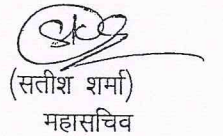 (सतीश शर्मा)
महासचिव